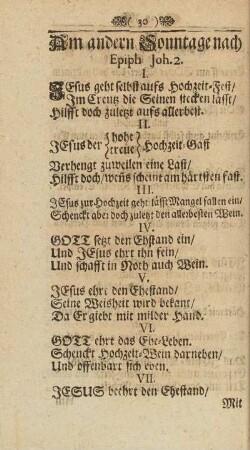 ( 30 )
Am andern Sonntage nach
Epiph Joh. 2.
I.
JEsus geht selbst aufs Hochzeit-Fest/
Im Creutz die Seinen stecken lässt/
Hilfft doch zuletzt aufs allerbest.
II.
JEsus der { hohe / treue } Hochzeit-Gast
Verhengt zuweilen eine Last/
Hilfft doch/ weñs scheint am härtsten fast.
III.
JEsus zur Hochzeit geht lässt Mangel fallen ein/
Schenckt aber doch zuletzt den allerbesten Wein.
IV.
GOTT setzt den Ehstand ein/
Und JEsus ehrt ihn fein/
Und schafft in Noth auch Wein.
V.
JEsus ehrt den Ehestand/
Seine Weisheit wird bekant/
Da Er giebt mit milder Hand.
VI.
GOTT ehrt das Ehe-Leben.
Schenckt Hochzeit-Wein darneben/
Und offenbart sich eben.
VII.
JESUS beehrt den Ehestand/
Mit